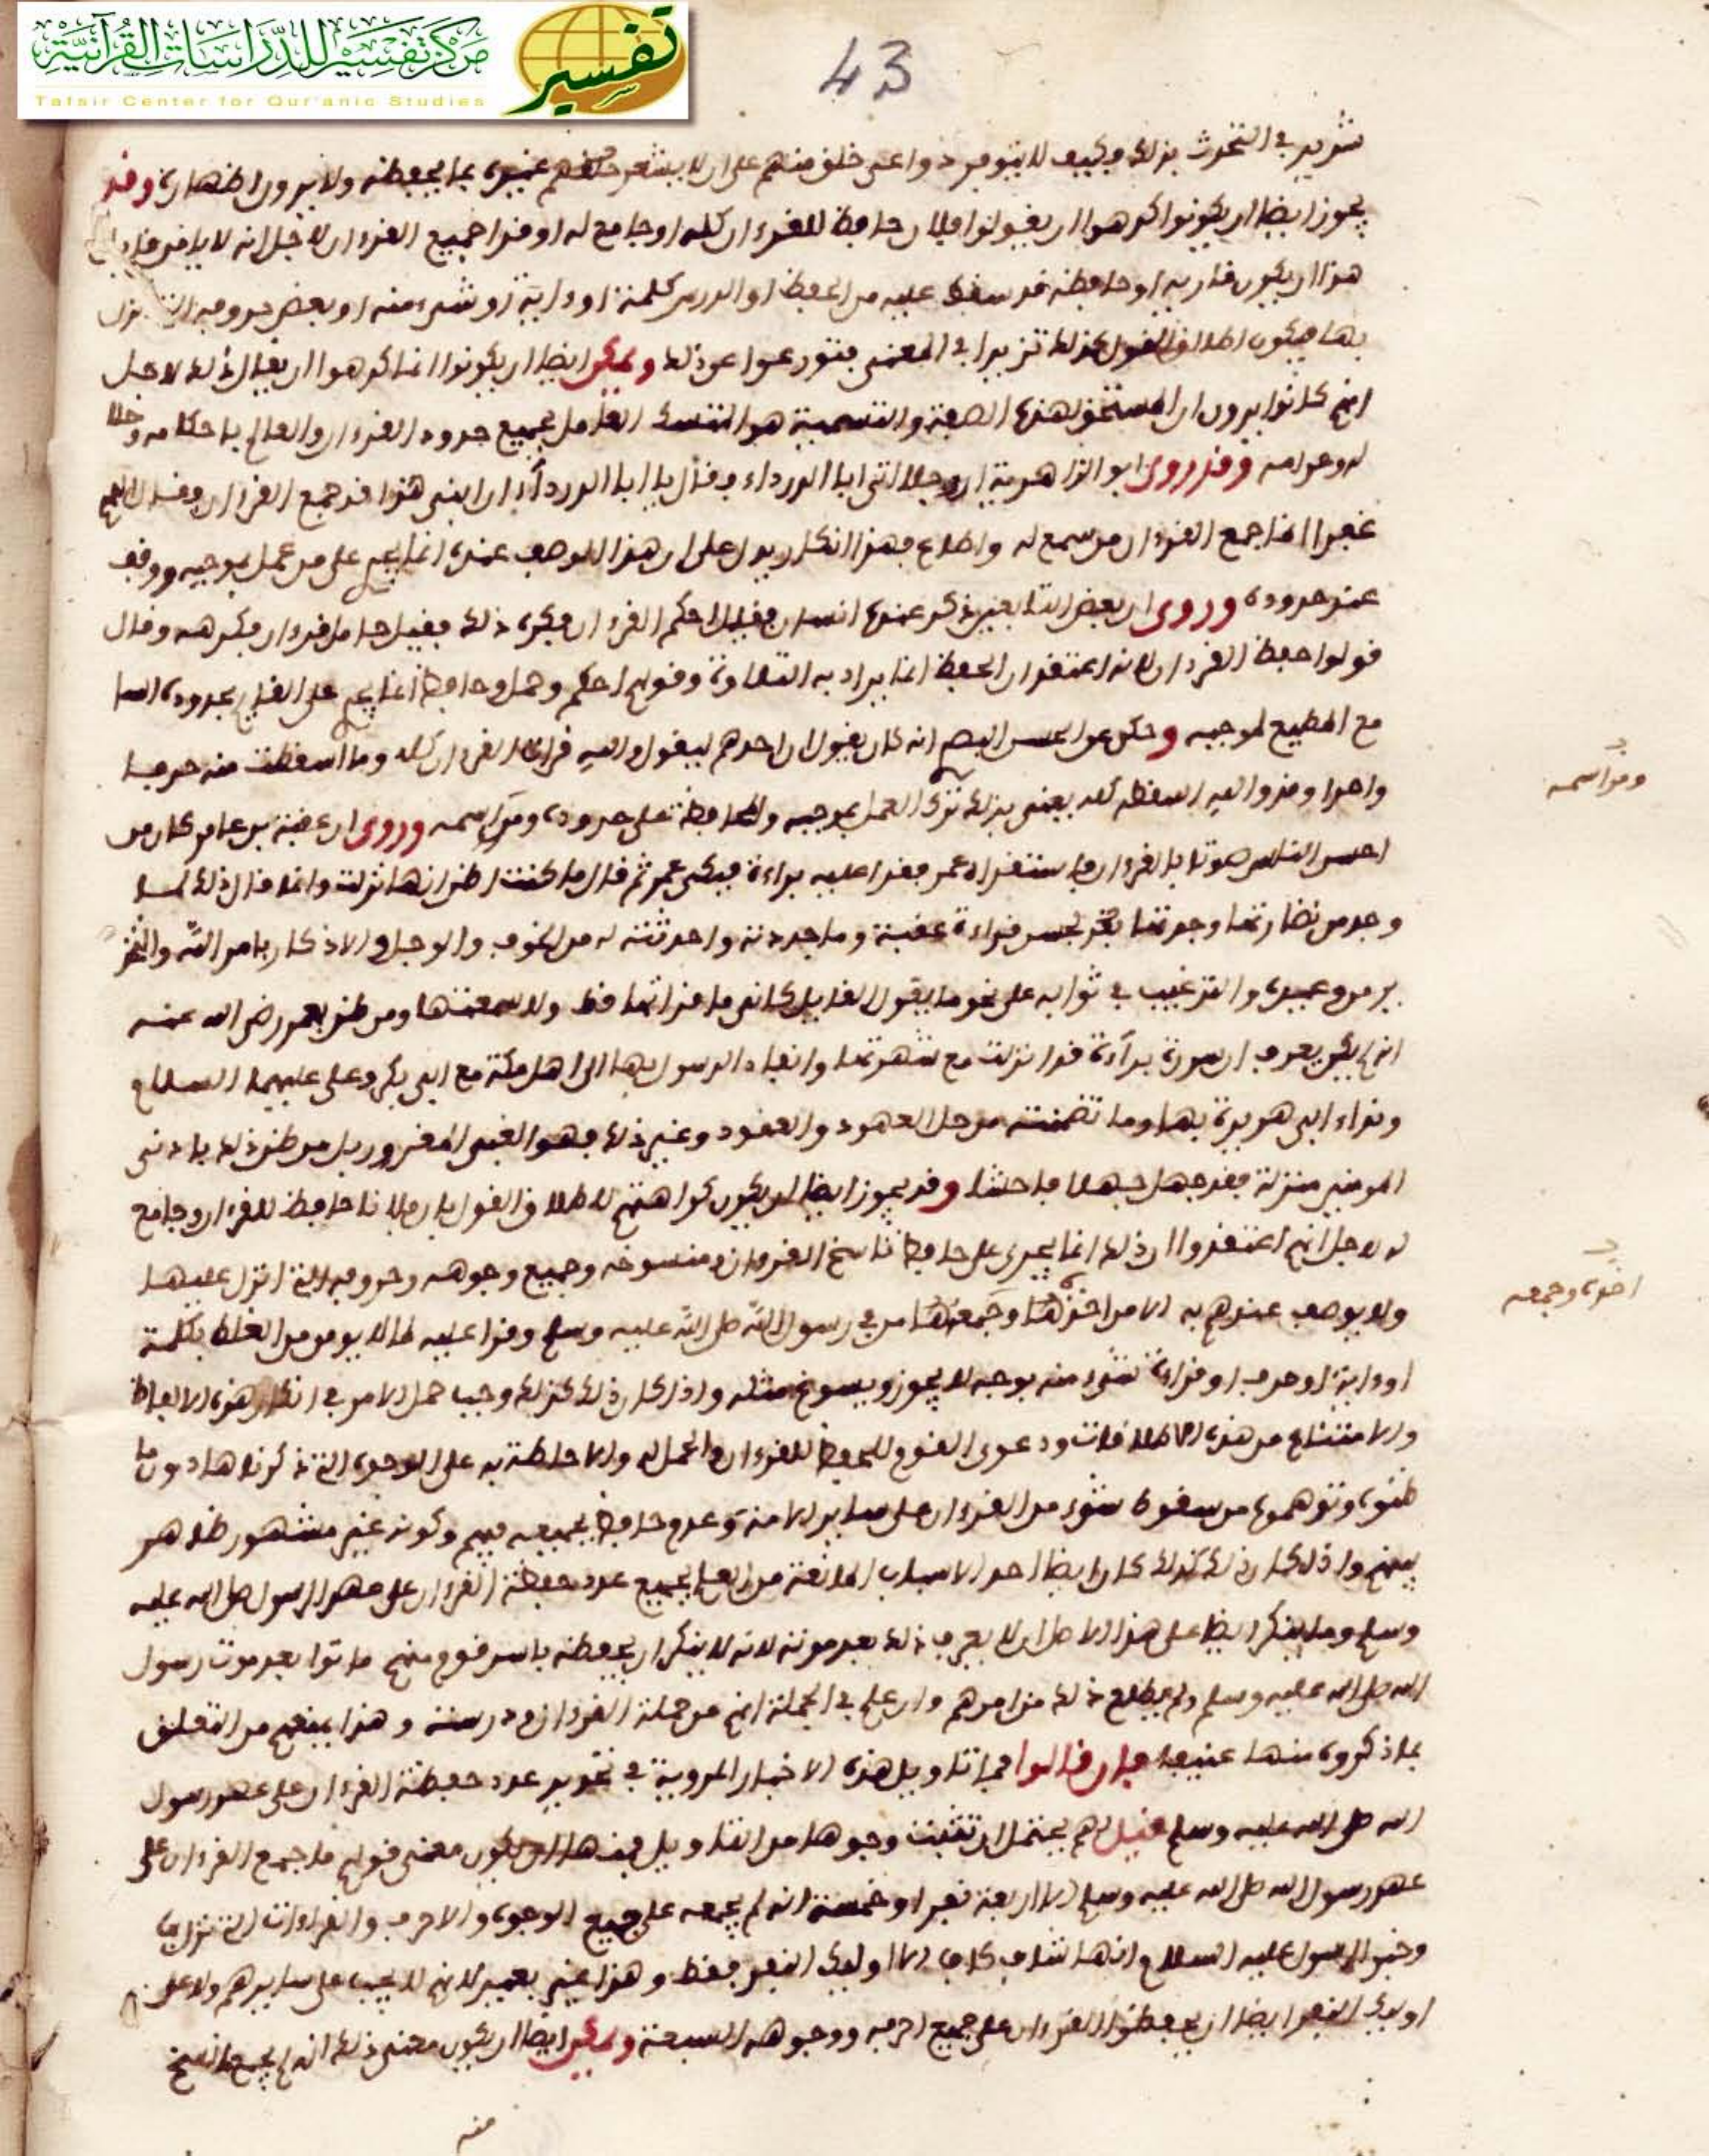 مركز تفسير للدراسات القرآنية
Tafsir Center for Qur'anic Studies
تفسير
43
في التحدث بذلك وكيف لا تتوفر دواعي خلق منهم على ان لا يشعر غيره بما يحفظه ولا يرون اظهاره وقد
يجوز ايضا ان يكونوا كرهوا ان يقولوا فلان حافظ للقرءان كله او جامع له او قرا جميع القرءان لاجل انه لا يامن
هذا ان يكون قاريه او حافظه قد سقط عليه من الحفظ او الدرس كلمة او ءاية او شيء منه او بعض حروفه التي نزل
بها فيكون اطلاق القول كذلك تزيدا في المعنى فتورعوا عن ذلك ويمكن ايضا ان يكونوا انما كرهوا ان يقال ذلك لاجل
انهم كانوا يرون ان المستحق لهذه الصفة والتسمية هو العامل بجميع حدود القرءان والعالم باحكامه وحلا
له وحرامه وقد روى ابو الزاهرية ان رجلا اتى ابا الدرداء وقال يا ابا الدرداء ان ابني هذا قد جمع القرءان وقال اللهم
غفرا انما جمع القرءان من سمع له واطاع فهذا انكار يدل على ان هذا الوصف عنده انما يجري على من عمل بموجبه ووقف
عند حدوده وروى ان بعض التابعين ذكر عنده انسان فقيل احكم القرءان فكره ذلك فقيل حامل قرءان فكرهه وقال
قولوا حفظ القرءان لانه اعتقد ان الحفظ انما يراد به التلاوة وقولهم احكم وحمل وحافظ انما يجري على القايم بحدوده السا
مع المطيع لموجبه وحكى عن الحسن انه كان يقول ان احدهم ليقول والله قرات القرءان كله وما اسقطت منه حرفا
واحدا وقد والله اسقطه كله يعني بذلك ترك العمل بموجبه والمحافظة على حدوده ومراسمه وروى ان عقبة بن عامر كان من
احسن الناس صوتا بالقرءان فاستقراه عمر فقرا عليه براءة فبكى عمر ثم قال ما كنت اظن انها نزلت وانما قال ذلك لما
وجد من نضارتها وجدتها بحسن قراءة عقبة وما جددته واحدثته له من الخوف والوجل والاذكار بامر الله والتحذ
ير من وعيده والترغيب في ثوابه على نحو ما يقول القايل كاني ما قراتها قط ولا سمعتها ومن ظن بعمر رضي الله عنه
انه لم يكن يعرف ان سورة براءة قد انزلت مع شهرتها وانفاد الرسول بها الى اهل مكة مع ابي بكر وعلي عليهما السلام
ونداء ابي هريرة بها وما تضمنته من حل العهود والعقود وغير ذلك فهو الغبي المغرور بل من ظن ذلك بادنى
المومنين منزلة فقد جهل جهلا فاحشا وقد يجوز ايضا ان يكون كراهتهم لاطلاق القول بان فلانا حافظ للقرءان وجامع
له لاجل انهم اعتقدوا ان ذلك انما يجري على حافظ ناسخ القرءان ومنسوخه وجميع وجوهه وحروفه التي انزل عليها
ولا يوصف عندهم به الا من اخذها وجمعها من في رسول الله صلى الله عليه وسلم وقرا عليه لما لا يومن من الغلط بكلمة
او ءاية او حرف او قراءة شيء منه بوجه لا يجوز ويسوغ مثله واذا كان ذلك كذلك وجب حمل الامر في انكار هذه الالفاظ
والامتناع من هذه الاطلاقات ودعوى القوم للحفظ للقرءان والحمل له والاحاطة به على الوجوه التي ذكرناها دون ما
ظنوه وتوهموه من سقوط شيء من القرءان على ساير الامة وعدم حافظ بجميعه فيهم وكونه غير مشهور ظاهر
بينهم واذا كان ذلك كذلك كان ايضا احد الاسباب المانعة من العلم بجميع عدد حفظة القرءان على عهد الرسول صلى الله عليه
وسلم وما ينكر ايضا على هذا الاصل ان لا يعرف ذلك بعد موته لانه لا ينكر ان يحفظه باسره قوم منهم ماتوا بعد موت رسول
الله صلى الله عليه وسلم ولم يطلع ذلك من امرهم وان علم في الجملة انهم من حملة القرءان ودرسته وهذا يمنعهم من التعلق
بما ذكروه منها فان قالوا فما تاويل هذه الاخبار المروية في تحديد عدد حفظة القرءان على عهد رسول
الله صلى الله عليه وسلم قيل لهم يحتمل ان ثبتت وجوها من التاويل فمنها ان يكون معنى قولهم ما جمع القرءان على
عهد رسول الله صلى الله عليه وسلم الا اربعة نفر او خمسة انه لم يجمعه على جميع الوجوه والاحرف والقراءات التي نزل بها
وخبر الرسول عليه السلام انها شاف كاف الا اوليك النفر فقط وهذا غير بعيد لانه لا يجب على سايرهم ولا على
اوليك النفر ايضا ان يحفظوا القرءان على جميع احرفه ووجوهه السبعة ويمكن ايضا ان يكون معنى ذلك انه لم يجمع ما نسخ
منه
ومراسمه
اخذه وجمعه